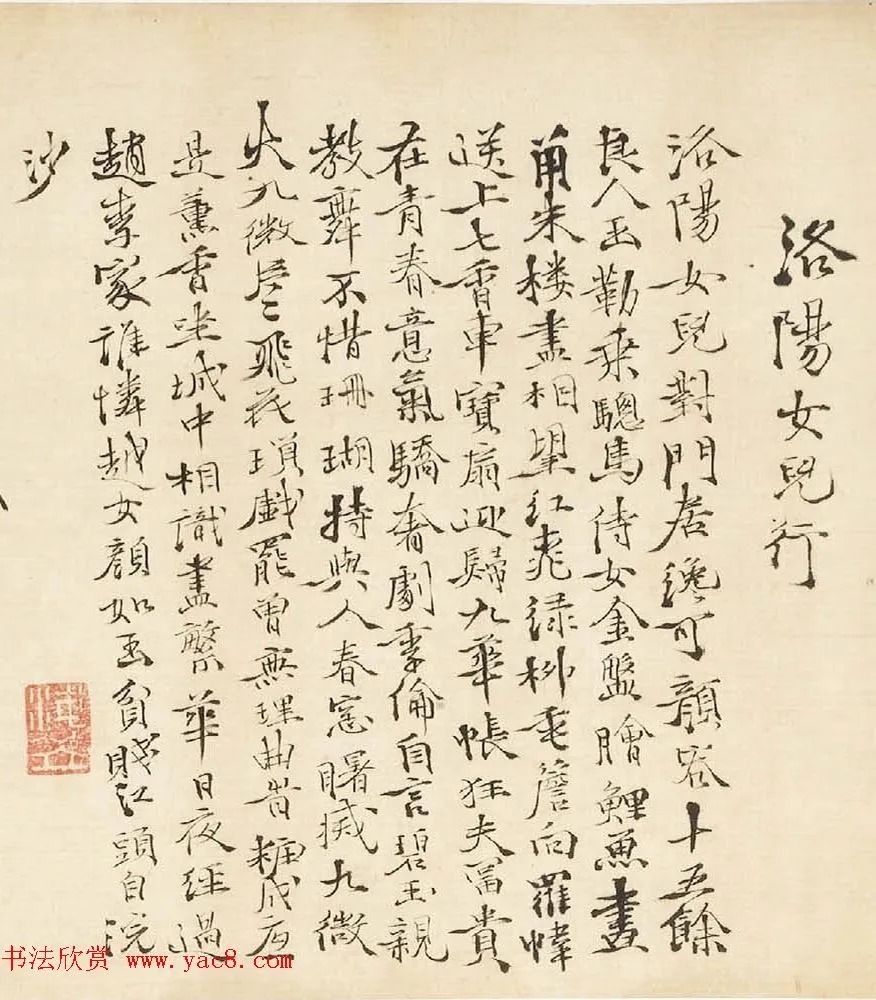 洛陽女兒行
洛陽女兒對門居纔可顏容十五餘
良人玉勒乘驄馬侍女金盤膾鯉魚畫
朱楼盡相望紅桃綠柳垂簷向羅幃
送上七香車寶扇迎歸九華帳狂夫富貴
在青春意氣驕奢劇季倫自言碧玉親
教舞不惜珊瑚持與人春窓曙滅九微
火九微片片飛花瑣戲罷曾無理曲旹糚成
是薰香坐城中相識盡繁華日夜經過
趙李家誰憐越女顏如玉貧賤江頭自浣
沙
书法欣赏 www.yac8.com